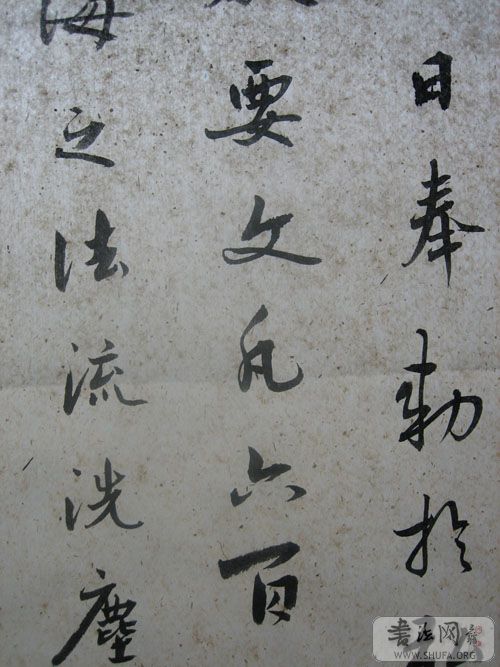 日奉勅於
要文凡六百
海之法流洗塵
书法网
WWW.SHUFA.ORG